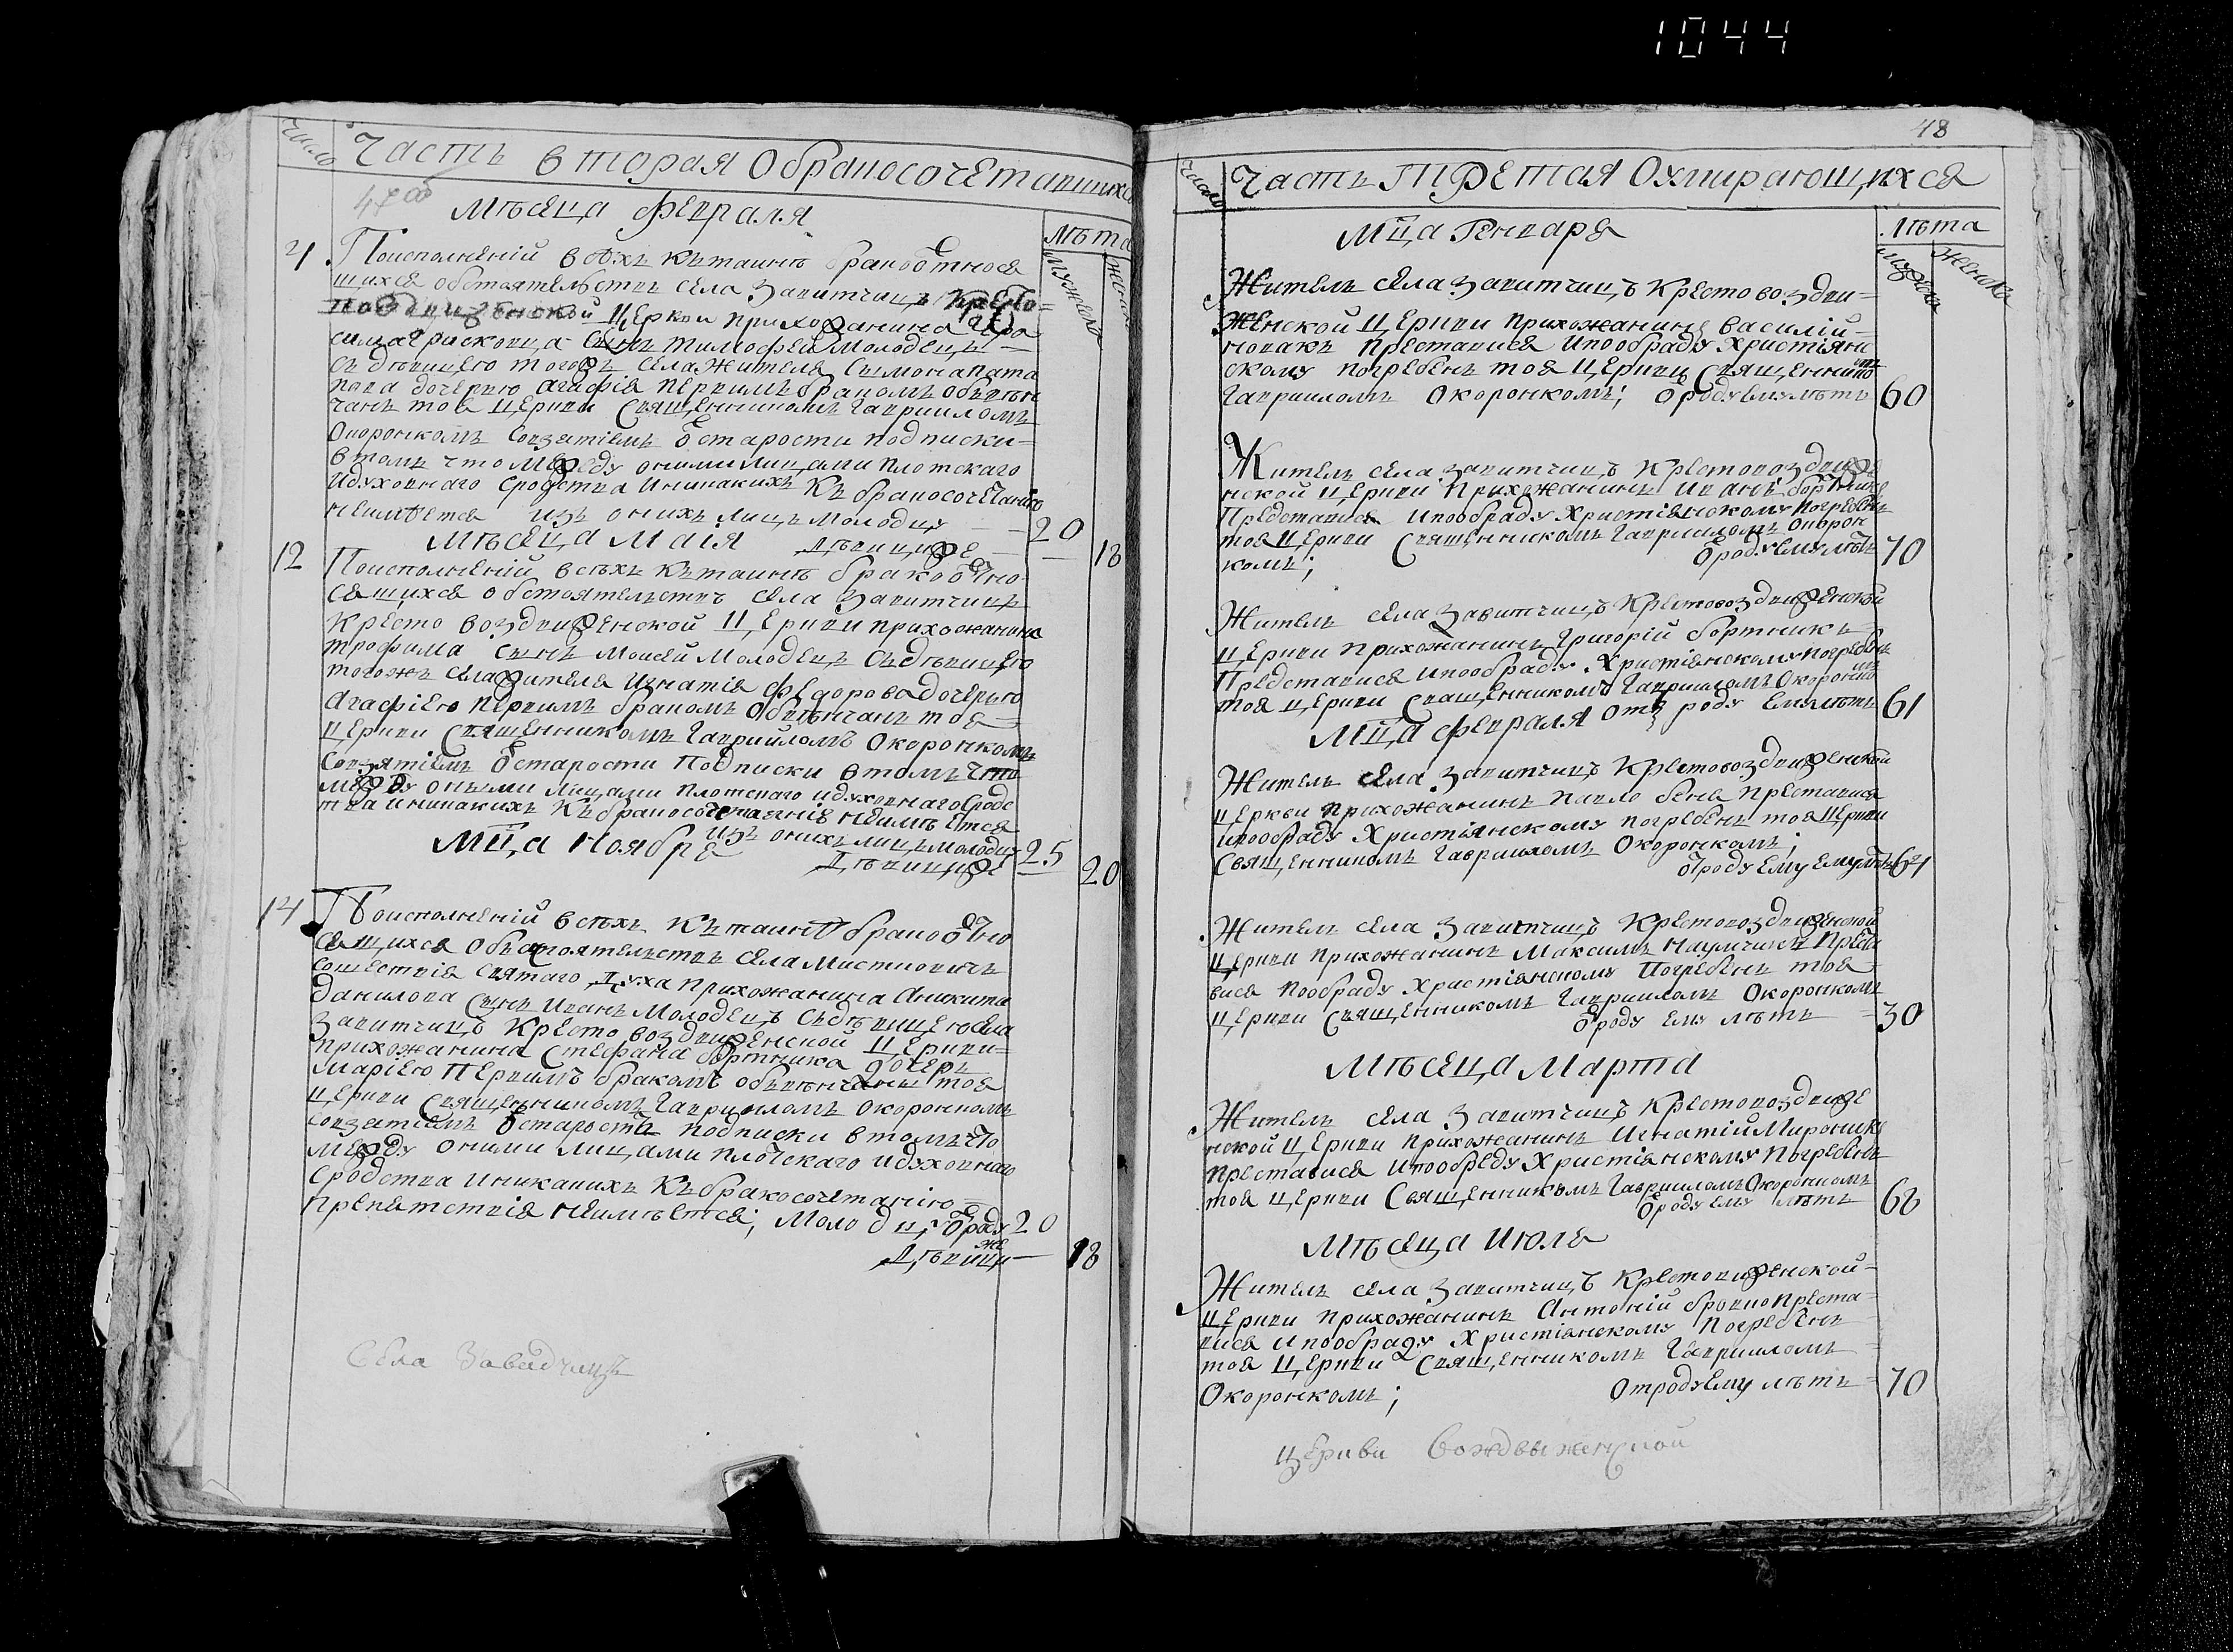 1044
Число
Часть вторая Обракосочетавшихся
47 об
Мѣсяца Февраля
Лѣта
Мужеска
4 Поисполненій всѣхъ Кътаинѣ бракоотнося
щихся обстоятельствъ села Завитчицъ Кресто=
воздвиженской Церкви прихожанина
сына Тимофей Молодецъ
съ дѣвицею тогожъ села жителя Сымона
дочерью Агафія первимъ бракомъ обвѣн
чанъ тоя Церкви Священникомъ Гавриіломъ
Окоронкомъ Совзятіемъ Ѿстарости подписки=
втомъ что между оними лицами плотскаго
идуховнаго сродства Ininакихъ Къ бракосочетанію
неимѣется изъ онихъ лицъ молодцу 20
Мѣсяца Маія Дѣвицыже 18
12 Поисполненій всѣхъ Кътаинѣ бракоѾно
сящихся обстоятельствъ села Завитчицъ
Кресто воздвиженской Церкви прихожанина
Трофима сынъ Моисей Молодецъ Съдѣвицею
тогожъ села жителя Игнатія Федорова дочерью
Агафіею первимъ бракомъ обвѣнчанъ тоя
Церкви Священникомъ Гавріиломъ Окоронкомъ
Совзятіемъ Ѿстарости Подписки втомъ что
между оными лицами плотскаго идуховнаго сродс
тва ининакихъ Къбракосочетанія неимѣется
изъ онихъ лицъ молодцу 25
Мца Ноября Дѣвицыже 20
14 Поисполненій всѣхъ Кътаинѣ бракоѾно
сящихся Обстоятельствъ села Мистковичъ
Сошествія Святаго Духа прихожанина Аникита
Данилова сынъ Иванъ Молодецъ Съдѣвицею села
Завитчицъ Кресто воздвиженской Церкви=
прихожанина Стефана бортника дочерь
Маріею Первимъ бракомъ обвѣнчанъ тоя
Церкви Священникомъ Гавриіломъ Окоронкомъ
совзятіемъ Ѿстарости подписки втомъ что
между оними лицами плотскаго идуховнаго
сродства Иникакихъ Къбракосочетанію=
препятствія неимѣется; Молодцу Ѿроду 20
Дѣвицыже 18
Села Завадчицъ
48
Число
Часть Третая Оумирающихся
Мца Генваря
Лѣта
Мужеска
Женска
Житель села Завитчицъ Крестовоздви=
женской Церкви прихожанинъ Василій=
новакъ Преставися Ипообряду Христіян
скому погребенъ тоя Церкви Священникомъ
Гавриіломъ Окоронкомъ; Ѿродуемулѣтъ 60
Житель села Завитчицъ Крестовоздвиже
нской Церкви Прихожанинъ Иванъ бортникъ
Представися Ипообряду Христіянскому погребенъ
тоя Церкви Священникомъ Гавриіломъ Окорон
комъ; Ѿродуемулѣтъ 70
Житель села Завитчицъ Крестовоздвиженской
Церкви прихожанинъ Григорій бортникъ=
Представися ипообряду Христіянскому погребенъ
тоя Церкви Священникомъ Гавриіломъ Окоронкомъ
Мца Февраля Отъ роду емулѣтъ 61
Житель села Завитчицъ Крестовоздвиженской
Церкви прихожанинъ Павло Преставися
ипообряду Христіянскому погребенъ тоя Церкви
Священникомъ Гавриіломъ Окоронкомъ;
Ѿроду Ему Емулѣтъ 64
Житель села Завитчицъ Крестовоздвиженской
Церкви прихожанинъ Максимъ Наумчикъ Преста
вися пообряду Христіянскому Погребенъ тоя
Церкви Священникомъ Гавриіломъ Окоронкомъ
Ѿроду ему лѣтъ 30
Мѣсяца Марта
Житель села Завитчицъ Крестовоздвиже
нской Церкви прихожанинъ Игнатій Мироникъ
Преставися ипообряду Христіянскому Погребенъ
тоя Церкви Священникомъ Гавриіломъ Окоронкомъ
Ѿроду ему лѣтъ 68
Мѣсяца Июля
Житель села Завитчицъ Крестовиженской=
Церкви прихожанинъ Антоній бровко Преста
вися ипообряду Христіянскому погребенъ
тоя Церкви Священникомъ Гавриіломъ
Окоронкомъ; Отродуему лѣтъ 70
церкви Вождвыженской